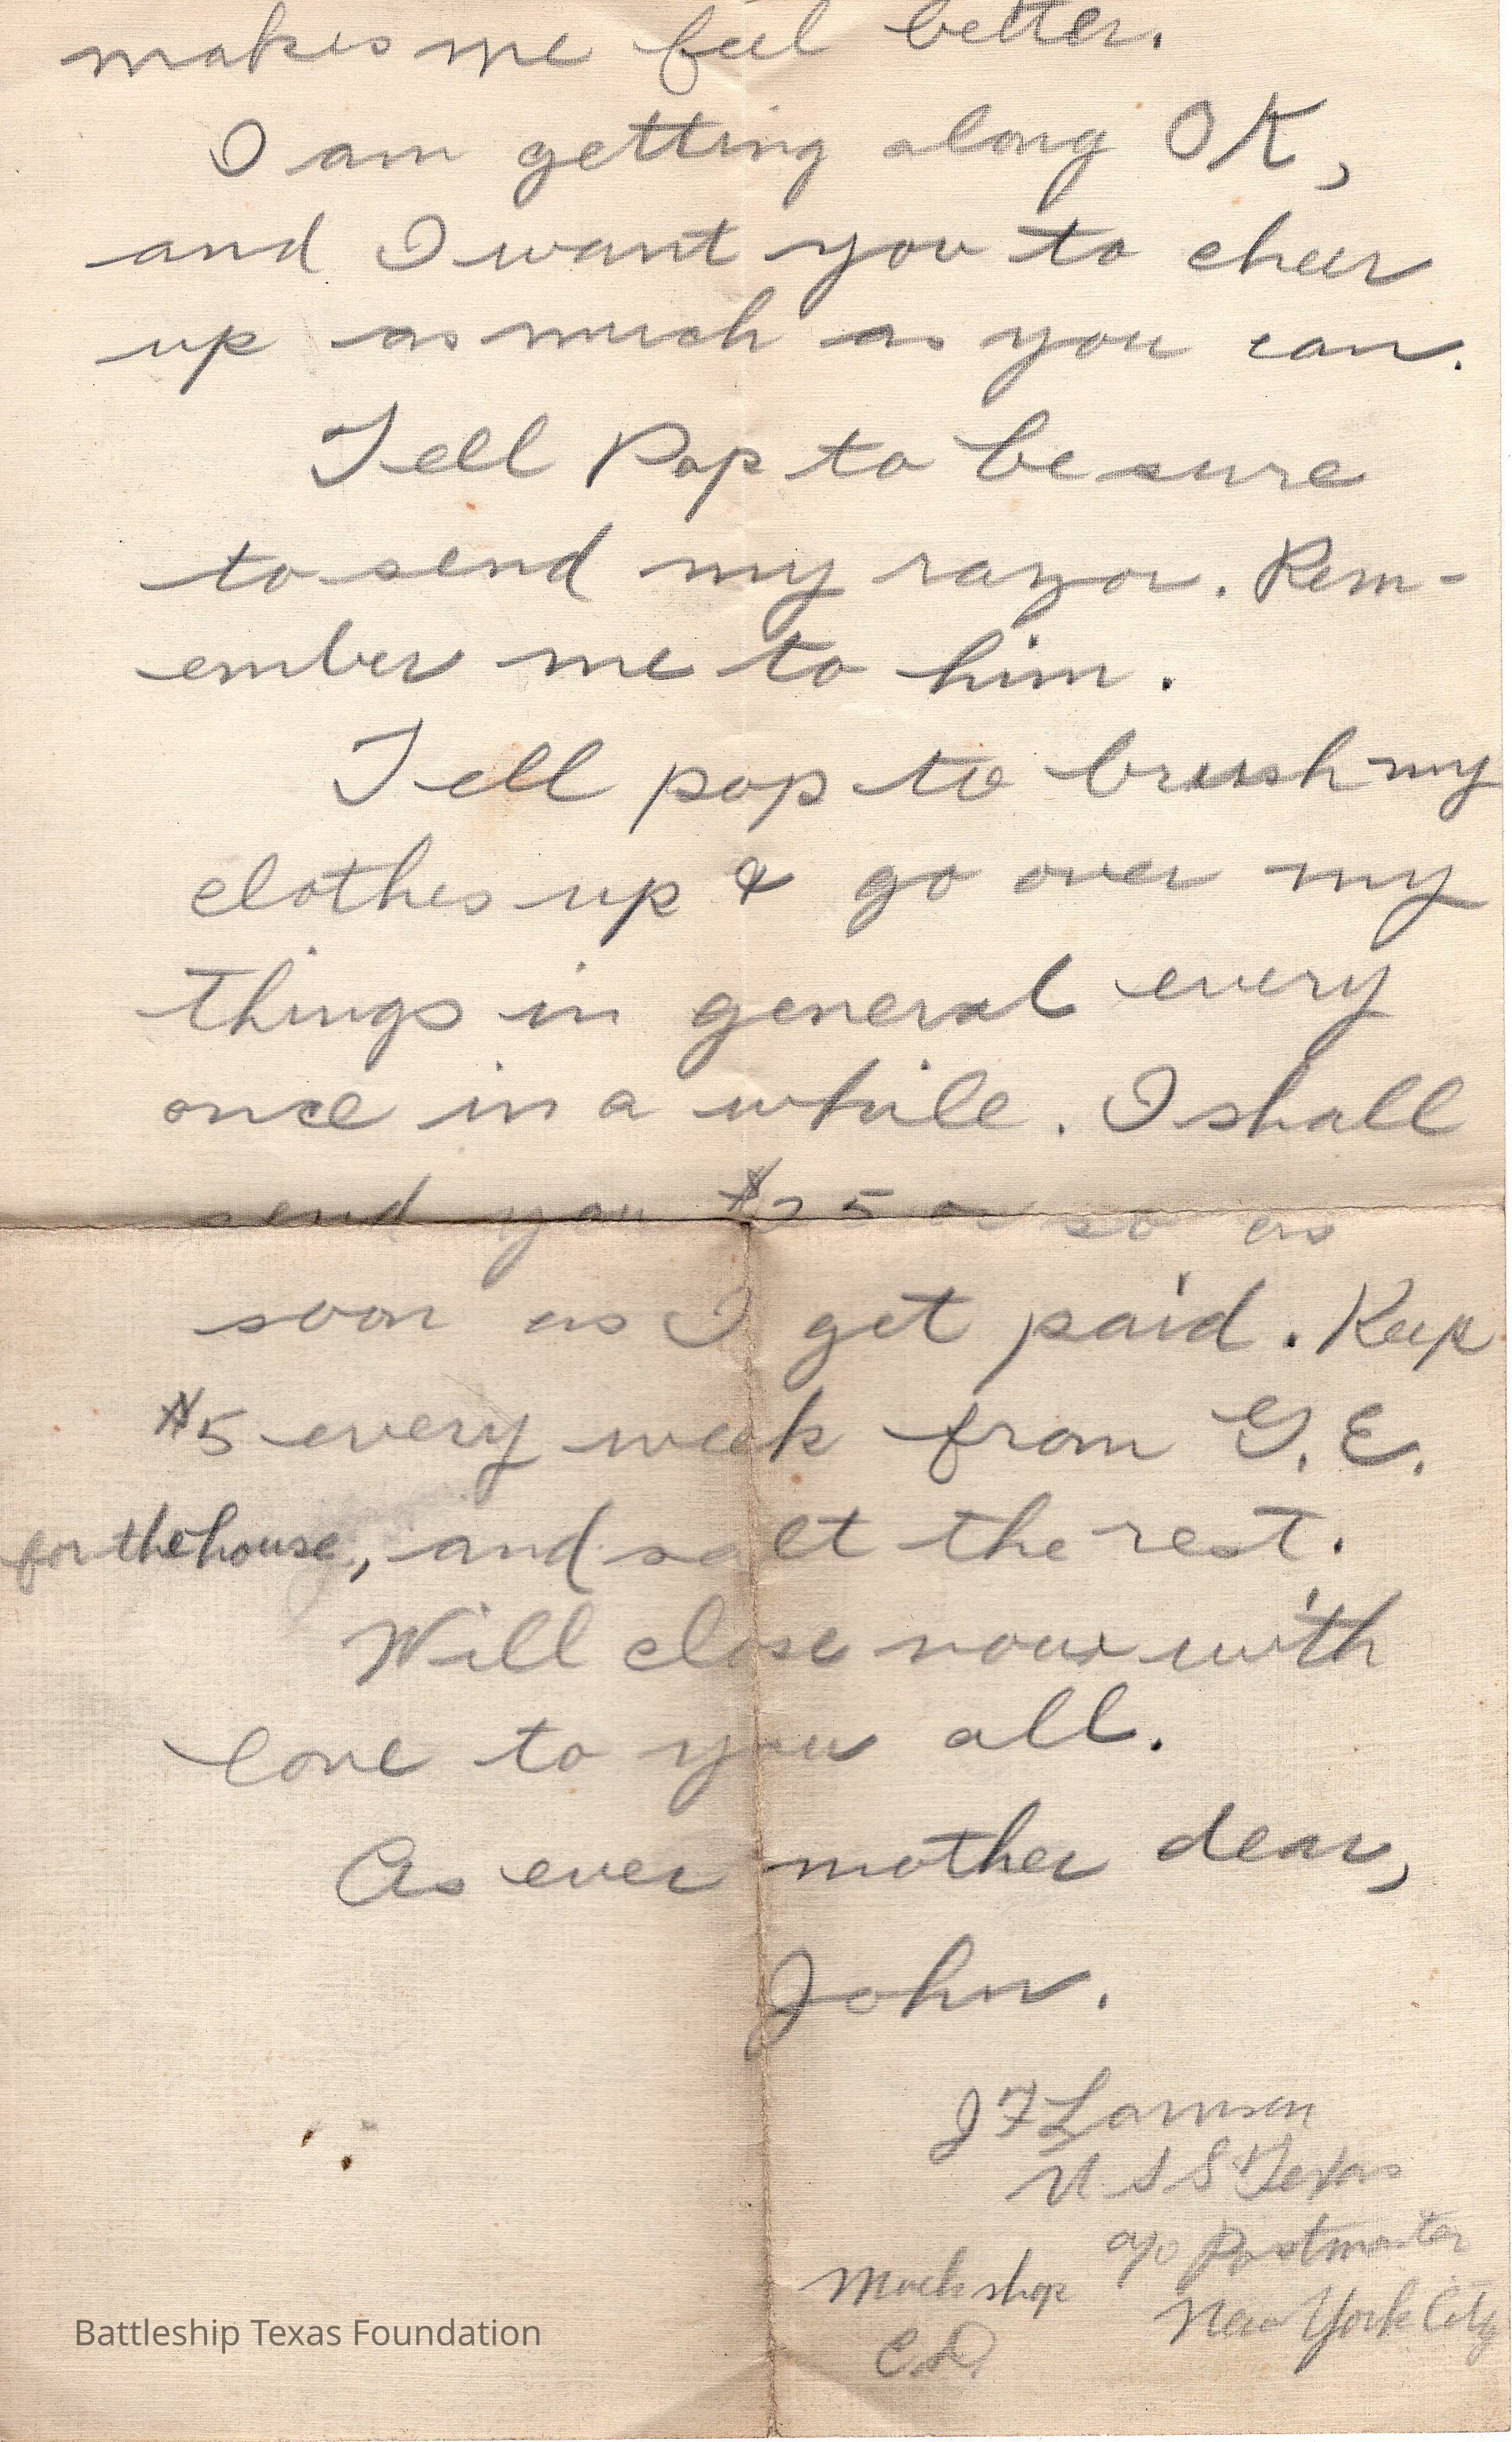 makes me feel better.
I am getting along OK,
and I want you to cheer
up as much as you can.
Tell Pop to be sure
to send my razor. Rem-
ember me to him.
Tell pop to brush my
clothes up & go over my
things in general every
once in a while. I shall
send you $25 or so as
soon as I get paid. Keep
$5 every week from G.E.
for the house, and salt the rest.
Will close now with
love to you all.
As ever mother dear,
John.
J F
U S S Texas
c/o Postmaster
New York City
Mach shop
C.D.
Battleship Texas Foundation